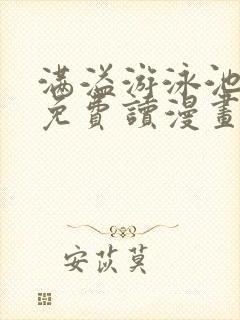 满溢游泳池
免費讀漫畫
安苡莫